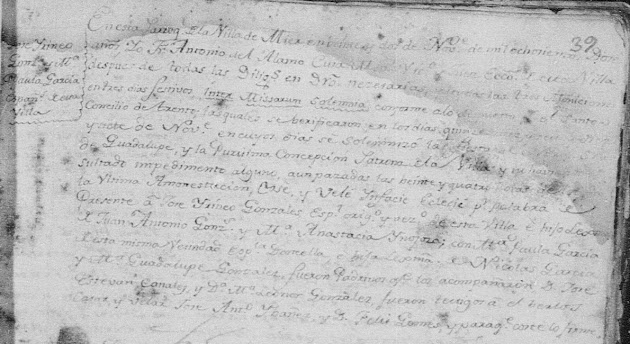 39
Jose Yrineo
Gonz.s y M.a
Paula Garcia
Españ.s de esta
Villa
En esta Parroq.l de la Villa de Mier en veinte y dos de Nov.e de mil ochocientos
años, Yo Fr. Antonio del Alamo Cura de esta Villa
despues de todas las Dilig.s en dro. necesarias, y leydas las tres Amonestaciones
entres dias festivos Inter Missarum Solemnia, conforme a lo dispuesto el Santo
Concilio de Trento, las quales se verificaron en los dias
y nete de Nov.e en cuyos dias se solemnizó la
de Guadalupe, y la Purisima Concepcion Patrona de la Villa y no haviendo
sultado impedimento alguno, aun pasadas las veinte y quatro horas de
la Ultima Amonestacion, Case, y Velé Infacie Eclecie p.r palabra de
Presente a Jose Yrineo Gonzales Esp.l orig.o y vez.o de esta Villa é hijo Lexmo
D. Juan Antonio Gonz.s y M.a Anastacia Ynojosa; con M.a Paula Garcia
de esta misma Vecindad Esp.la Donzella é hija Lexitma de Nicolas Garcia
y M.a Guadalupe Gonzalez, fueron Padrinos q.e los acompañaron D. Jose
Estevan Canales, y D.a M.a Leonor Gonzalez, fueron testigos al verlos
Casar y Velar Jose Ant.o Ybañez, y D. Felix Gomes, y para q.e conste lo firme